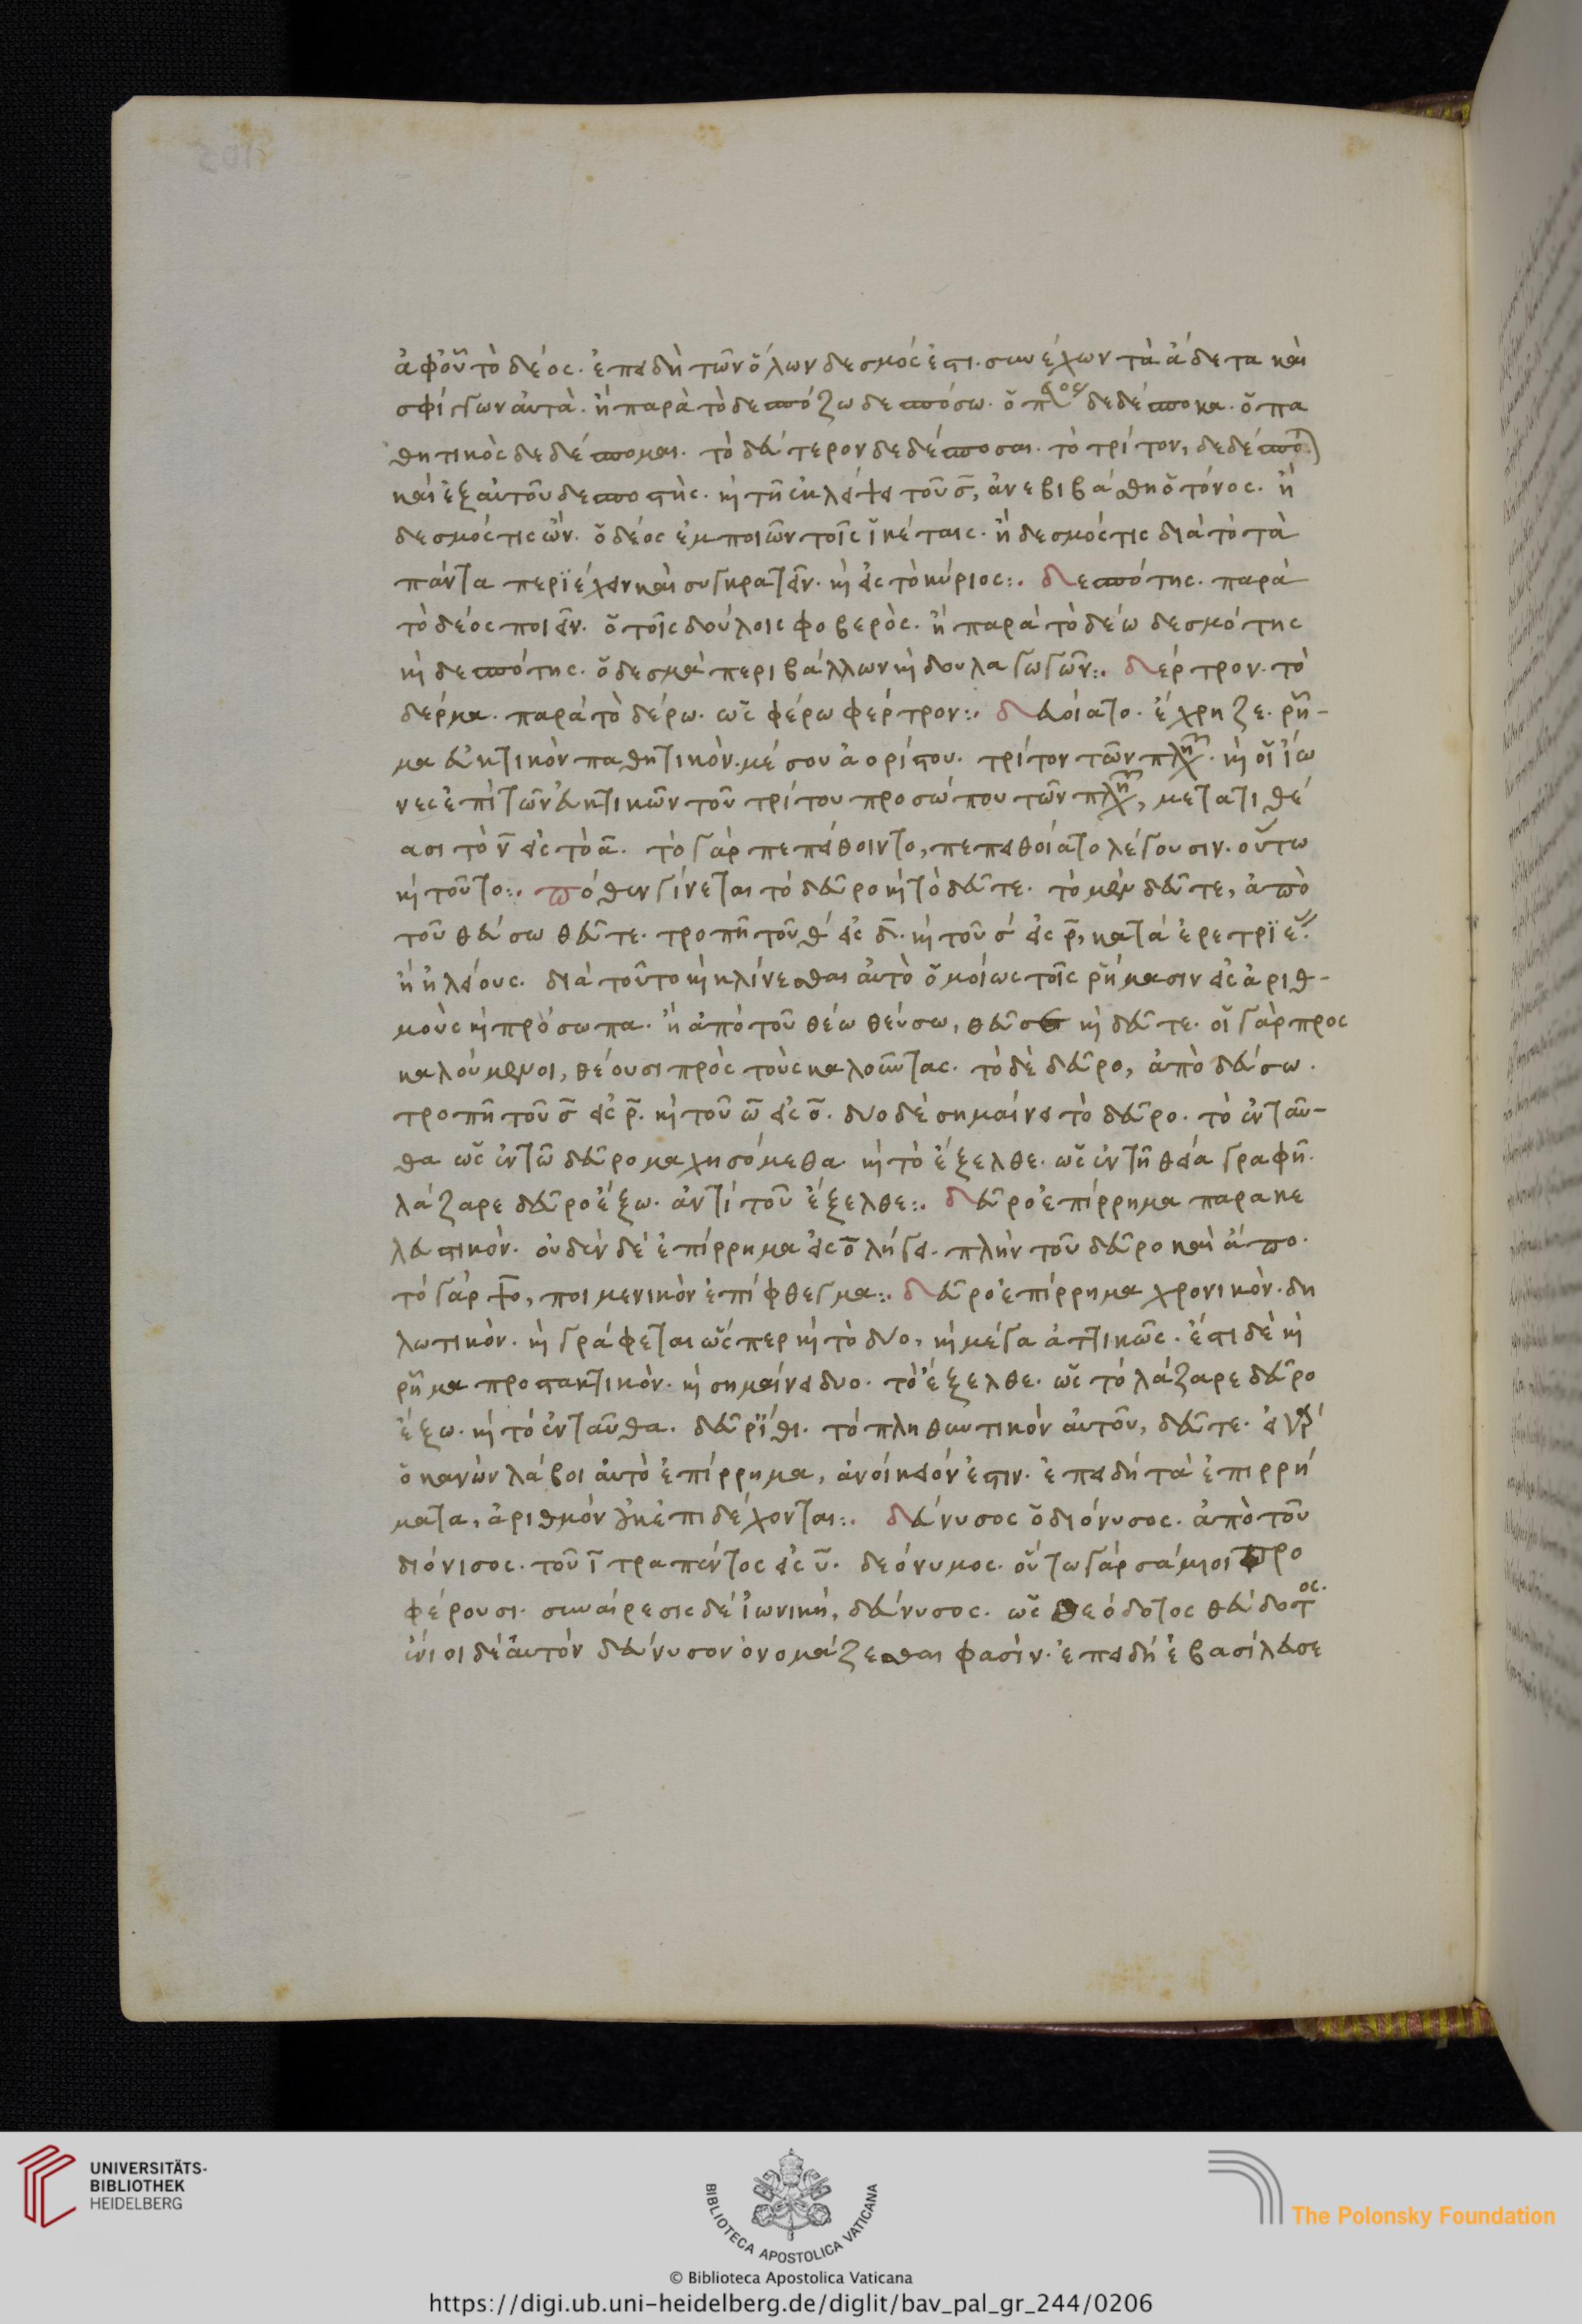 ἀφ' οὗ τὸ δέος. ἐπειδὴ τῶν ὅλων δεσμός ἐστι. συνέχων τὰ ἄδετα καὶ
σφίγγων αὐτά. ἢ παρὰ τὸ δεσπόζω δεσπόσω. ὁ δεδέσποκα. ὁ πα
θητικὸς δεδέσπομαι. τὸ δεύτερον δεδέσποσαι. τὸ τρίτον, δεδέσποται
καὶ ἐξ αὐτοῦ δεσποστὴς. καὶ τῇ ἐκλείψει τοῦ σ, ἀνεβιβάσθη ὁ τόνος. ἢ
δεσμός τις ὤν. ὁ δέος ἐμποιῶν τοῖς ἱκέταις. ἢ δεσμός τις διὰ τὸ τὰ
πάντα περιέχειν καὶ συγκρατεῖν. καὶ εἰς τὸ κύριος:. δεσπότης. παρὰ
τὸ δέος ποιεῖν. ὁ τοῖς δούλοις φοβερὸς. ἢ παρὰ τὸ δέω δεσμότης
καὶ δεσπότης. ὁ δεσμὰ περιβάλλων καὶ δουλαγωγῶν:. δέρτρον. τὸ
δέρμα. παρὰ τὸ δέρω. ὡς φέρω φέρτρον:. δευοίατο. ἔχρηζε. ῥῆ-
μα εὐκτικὸν παθητικὸν. μέσου ἀορίστου. τρίτον τῶν πλη. καὶ οἱ ἴω
νες ἐπὶ τῶν εὐκτικῶν τοῦ τρίτου προσώπου τῶν πλη, μετατιθέ
ασι τὸ ν εἰς τὸ α. τὸ γὰρ πεπείθοιντο, πεπειθοίατο λέγουσιν. οὕτω
καὶ τοῦτο:. πόθεν γίνεται τὸ δεῦρο καὶ τὸ δεῦτε. τὸ μὲν δεῦτε, ἀπὸ
τοῦ θεύσω θεῦτε. τροπῇ τοῦ θ εἰς δ. καὶ τοῦ σ εἰς ρ, κατὰ ἐρετριεῖς
ἢ ἠλείους. διὰ τοῦτο καὶ κλίνεσθαι αὐτὸ ὁμοίως τοῖς ῥήμασιν εἰς ἀριθ-
μοὺς καὶ πρόσωπα. ἢ ἀπὸ τοῦ θέω θεύσω, θεῦσε καὶ δεῦτε. οἱ γὰρ προς
καλούμενοι, θέουσι πρὸς τοὺς καλοῦντας. τὸ δὲ δεῦρο, ἀπὸ δεύσω.
τροπῇ τοῦ σ εἰς ρ. καὶ τοῦ ω εἰς ο. δυο δὲ σημαίνει τὸ δεῦρο. τὸ ἐνταῦ-
θα ὡς ἐν τῶ δεῦρο μαχησόμεθα καὶ τὸ ἔξελθε. ὡς ἐν τῇ θεία γραφῇ.
λάζαρε δεῦρο ἔξω. ἀντὶ τοῦ ἔξελθε:. δεῦρο ἐπίρρημα παρακε
λευστικὸν. οὐδὲν δὲ ἐπίρρημα εἰς ο λήγει. πλὴν τοῦ δεῦρο καὶ ἄπο.
τὸ γὰρ ψο, ποιμενικὸν ἐπίφθεγμα:. δεῦρο ἐπίρρημα χρονικὸν. δη
λωτικὸν. καὶ γράφεται ὥσπερ καὶ τὸ δυο, καὶ μέγα ἀττικῶς. ἔστι δὲ καὶ
ῥῆμα προστακτικὸν. καὶ σημαίνει δυο. τὸ ἔξελθε. ὡς τὸ λάζαρε δεῦρο
ἔξω. καὶ τὸ ἐνταῦθα. δεῦρ' ἴθι. τὸ πληθυντικὸν αὐτοῦ, δεῦτε. εἰ γὰρ
ὁ κανὼν λάβοι αὐτὸ ἐπίρρημα, ἀνοίκειόν ἐστιν. ἐπειδὴ τὰ ἐπιρρή
ματα, ἀριθμὸν οὐκ ἐπιδέχονται:. δεύνυσος ὁ διόνυσος. ἀπὸ τοῦ
διόνισος. τοῦ ι τραπέντος εἰς υ. δεόνυμος. οὕτω γὰρ σάμιοι προ
φέρουσι. συναίρεσις δὲ ἰωνικὴ, δεύνυσος. ὡς θεόδοτος θεύδοτος.
ἔνιοι δὲ αὐτὸν δεύνυσον ὀνομάζεσθαι φασὶν. ἐπειδὴ ἐβασίλευσε
UNIVERSITÄTS-
BIBLIOTHEK
HEIDELBERG
BIBLIOTECA APOSTOLICA VATICANA
The Polonsky Foundation
© Biblioteca Apostolica Vaticana
https://digi.ub.uni-heidelberg.de/diglit/bav_pal_gr_244/0206